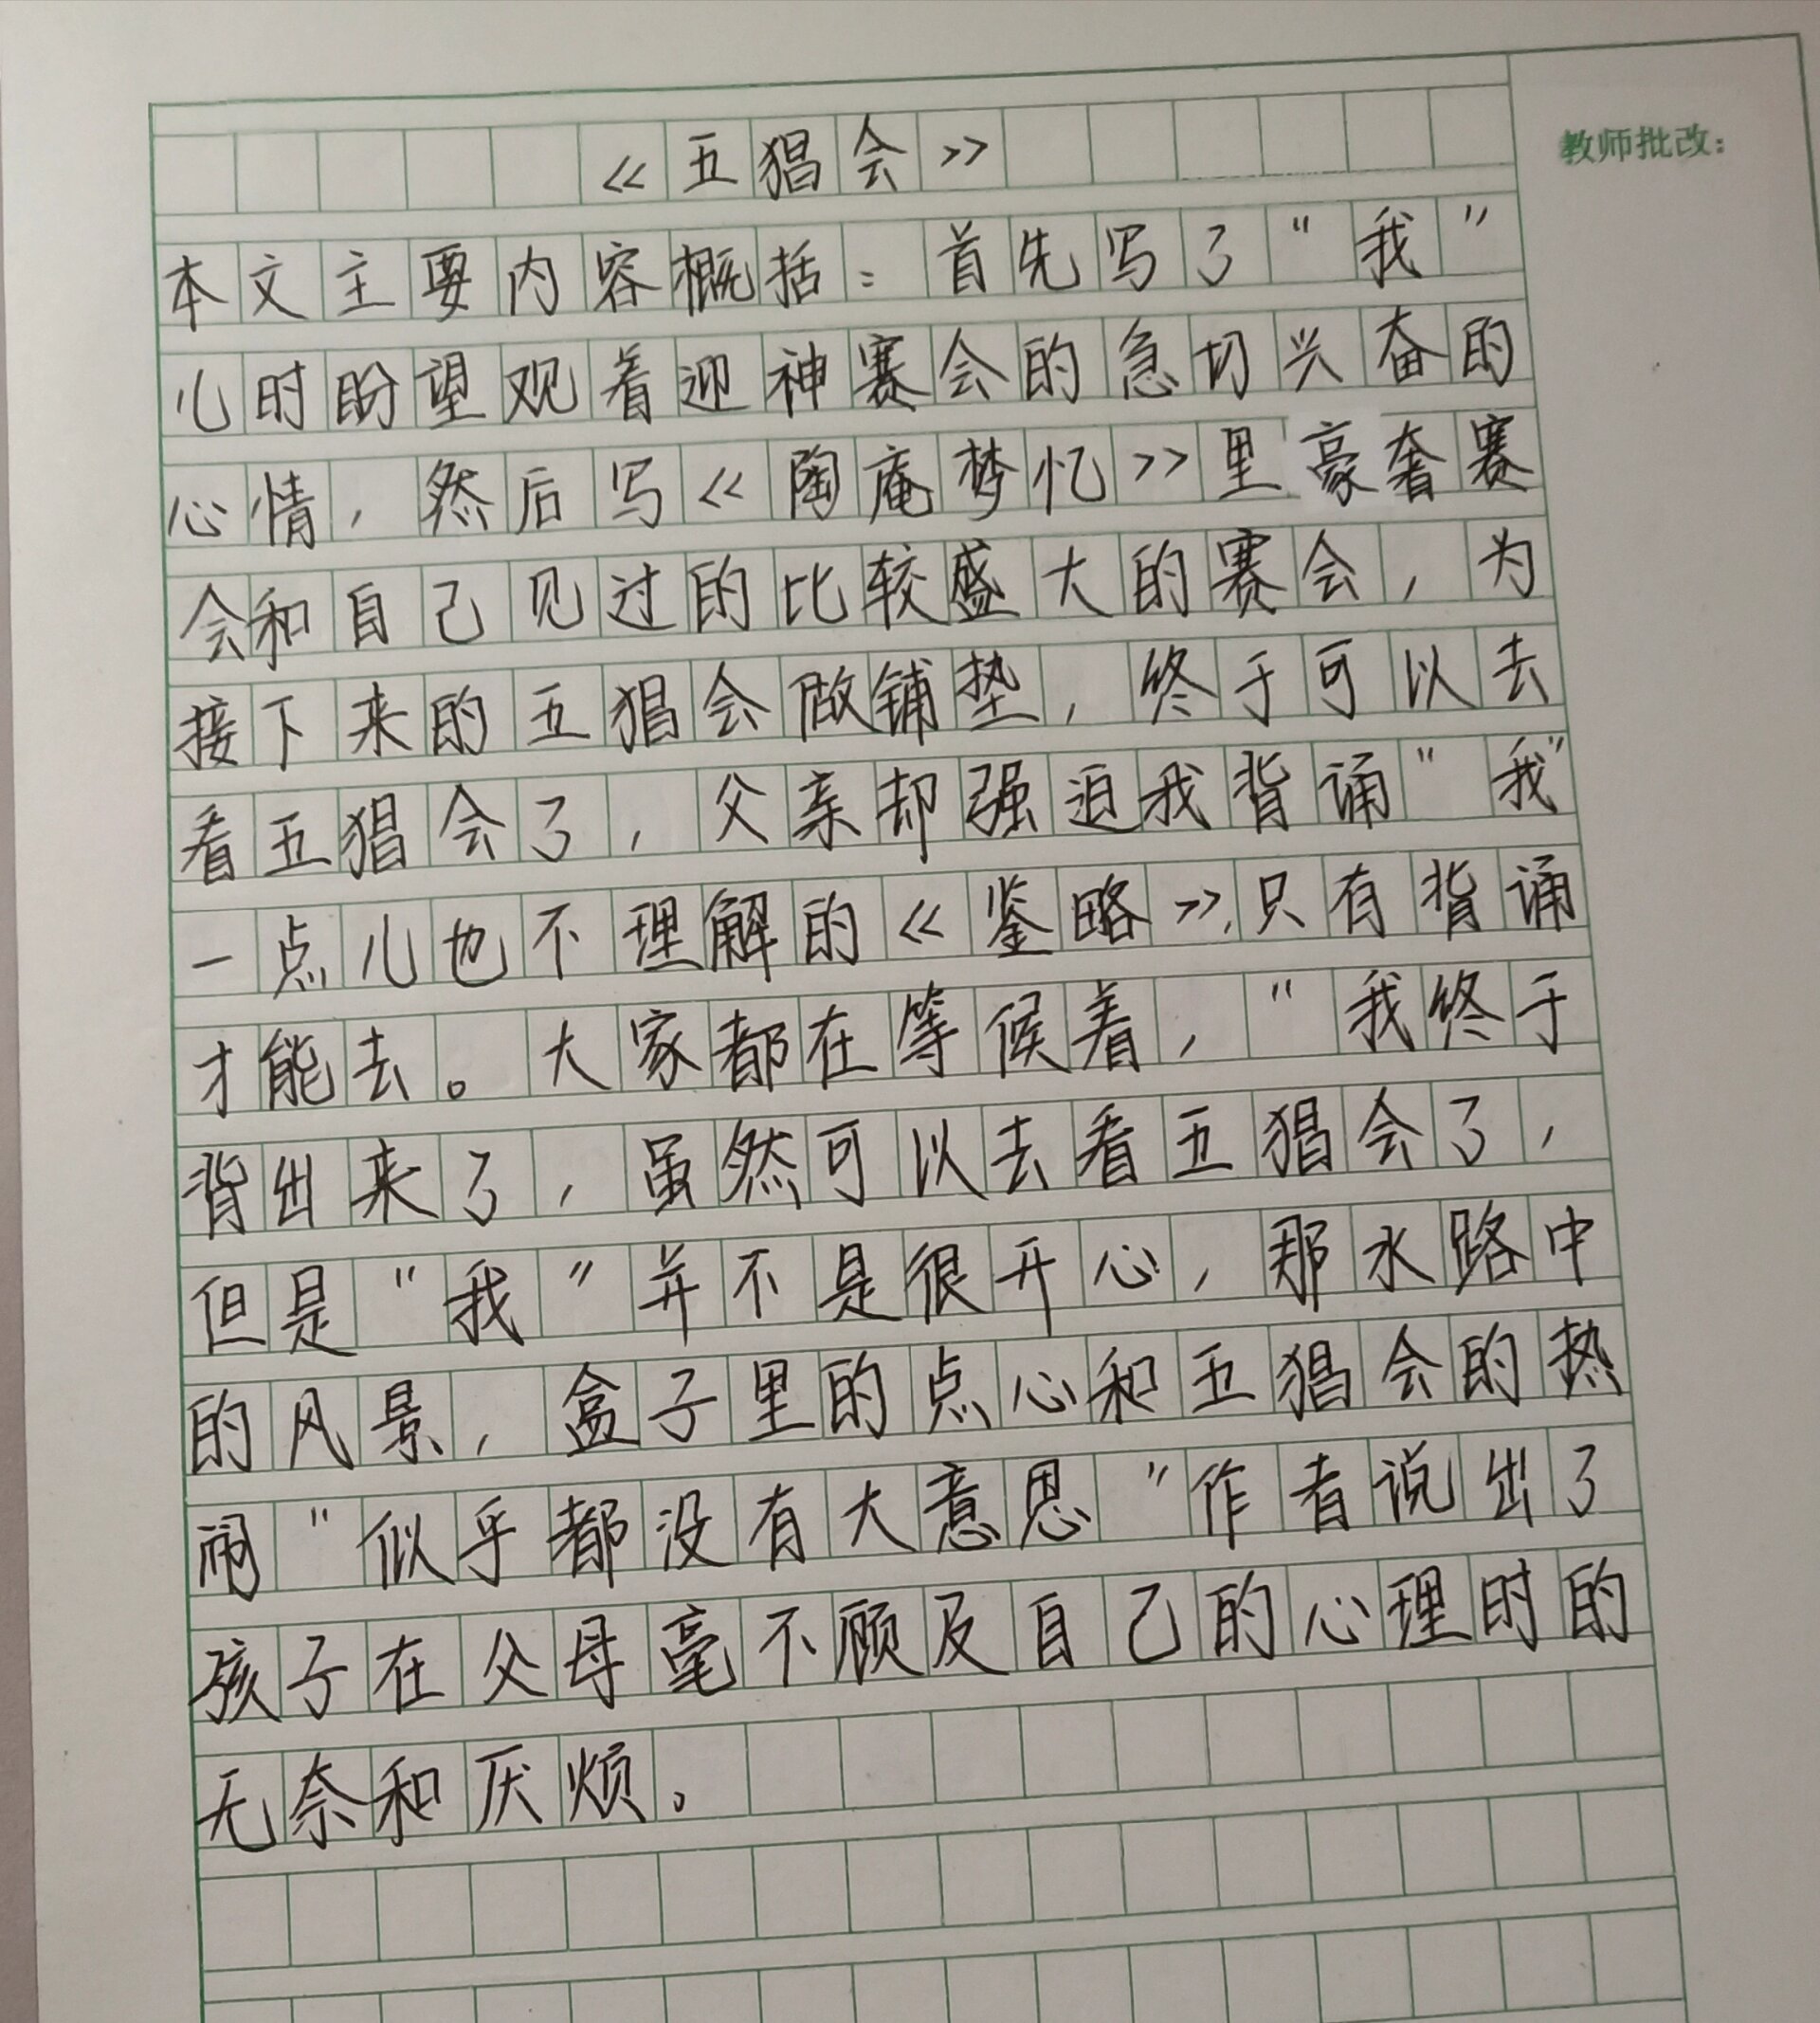 《五猖会》
教师批改：
本文主要内容概括：首先写了“我”
儿时盼望观着迎神赛会的急切兴奋的
心情，然后写《陶庵梦忆》里豪奢赛
会和自己见过的比较盛大的赛会，为
接下来的五猖会做铺垫，终于可以去
看五猖会了，父亲却强迫我背诵“我”
一点儿也不理解的《鉴略》，只有背诵
才能去。大家都在等候着，“我终于
背出来了，虽然可以去看五猖会了，
但是“我”并不是很开心，那水路中
的风景，盒子里的点心和五猖会的热
闹“似乎都没有大意思”作者说出了
孩子在父母毫不顾及自己的心理时的
无奈和厌烦。